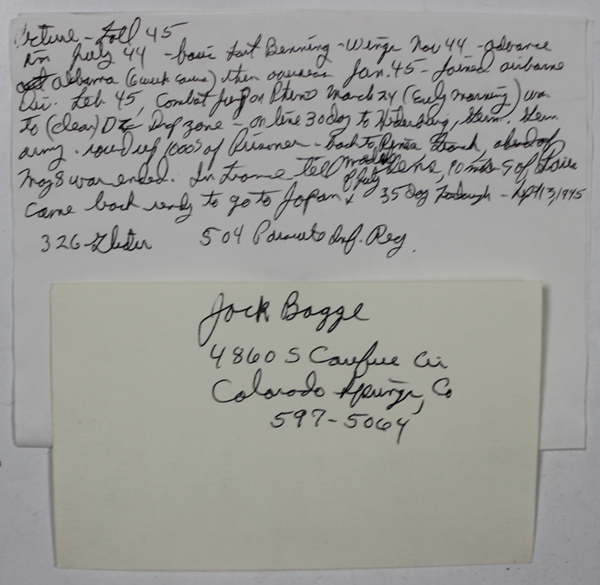 Picture - Fall 45
in July 44 - basic Fort Benning - Wings Nov 44 - advance
Alabama (6 week course) then overseas Jan. 45 - Joined airborne
Div. Feb 45, Combat jump on Rhine March 24 (Early morning) was
to (clear) Drop zone - on line 30 day to Germ. Germ
army. round up 1000's of Prisoner - Back to France
May 8 war ended. In France till middle of July 90 miles of Paris
Came back ready to go to Japan & 35 day Furlough - Sept 13, 1945
326 Glider 504 Parachute Inf. Reg.
Jack Bagge
4860 S Carefree Cir
Colorado Springs, Co
597-5064